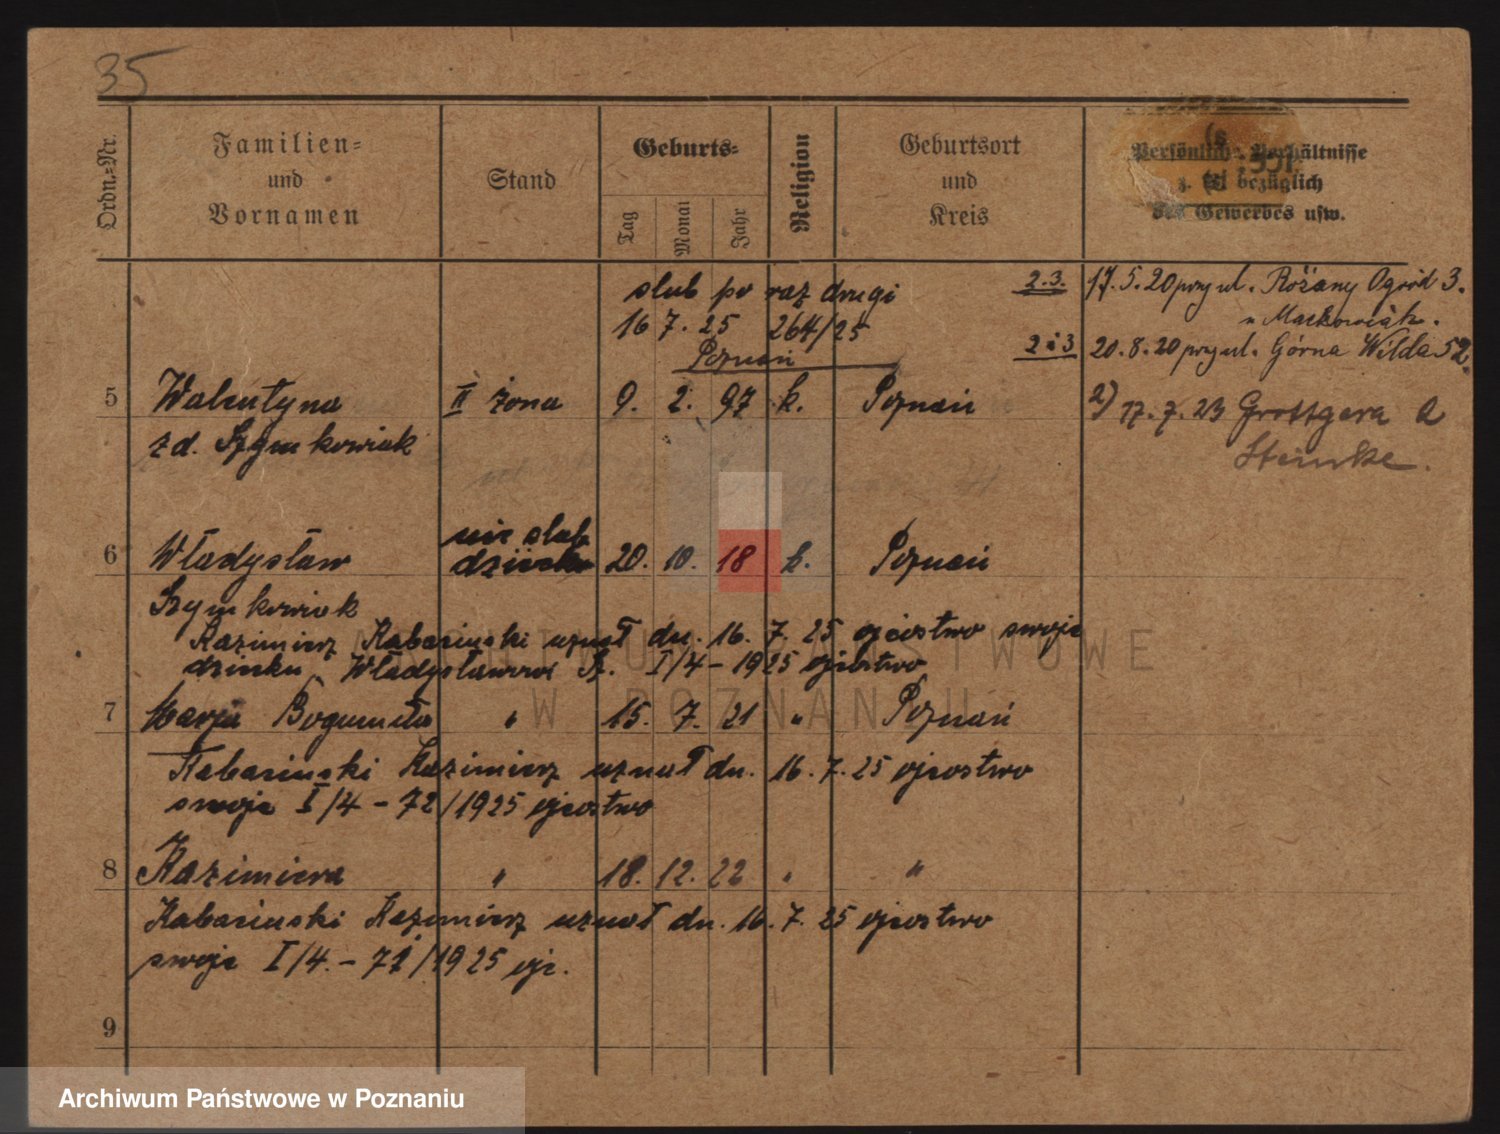 35
Ordn.-Nr.
Familien-
und
Vornamen
Stand
Geburts-
Tag
Monat
Jahr
Religion
Geburtsort
und
Kreis
Persönliche Verhältnisse
z. B. bezüglich
des Gewerbes usw.
ślub po raz drugi
16 7. 25 264/25
Poznań
2.3. 17.5.20 przy ul. Różany Ogród 3.
u
2 i 3 20.8.20 przy ul. Górna Wilda 52.
5 Walentyna II żona 9. 2. 97 k. Poznań
2) 17.7.23 Grottgera 2
zd. Szymkowiak
6 Władysław nie ślub
dziecko 20. 10. 18 k. Poznań
Szymkowiak
Kazimierz Kabaciński uznał dn. 16. 7. 25 ojcostwo swoje
dziecku Władysławowi Sz. I/4 - 1925 ojcostwo
7 Marja Bogumiła " 15. 7. 21 " Poznań
Kabaciński Kazimierz uznał dn. 16.7.25 ojcostwo
swoje I/4 - 72/1925 ojcostwo
8 Kazimiera " 18. 12. 22 " "
Kabaciński Kazimierz uznał dn. 16.7.25 ojcostwo
swoje I/4. - 71/1925 ojc.
9
ARCHIWUM PAŃSTWOWE
W POZNANIU
Archiwum Państwowe w Poznaniu